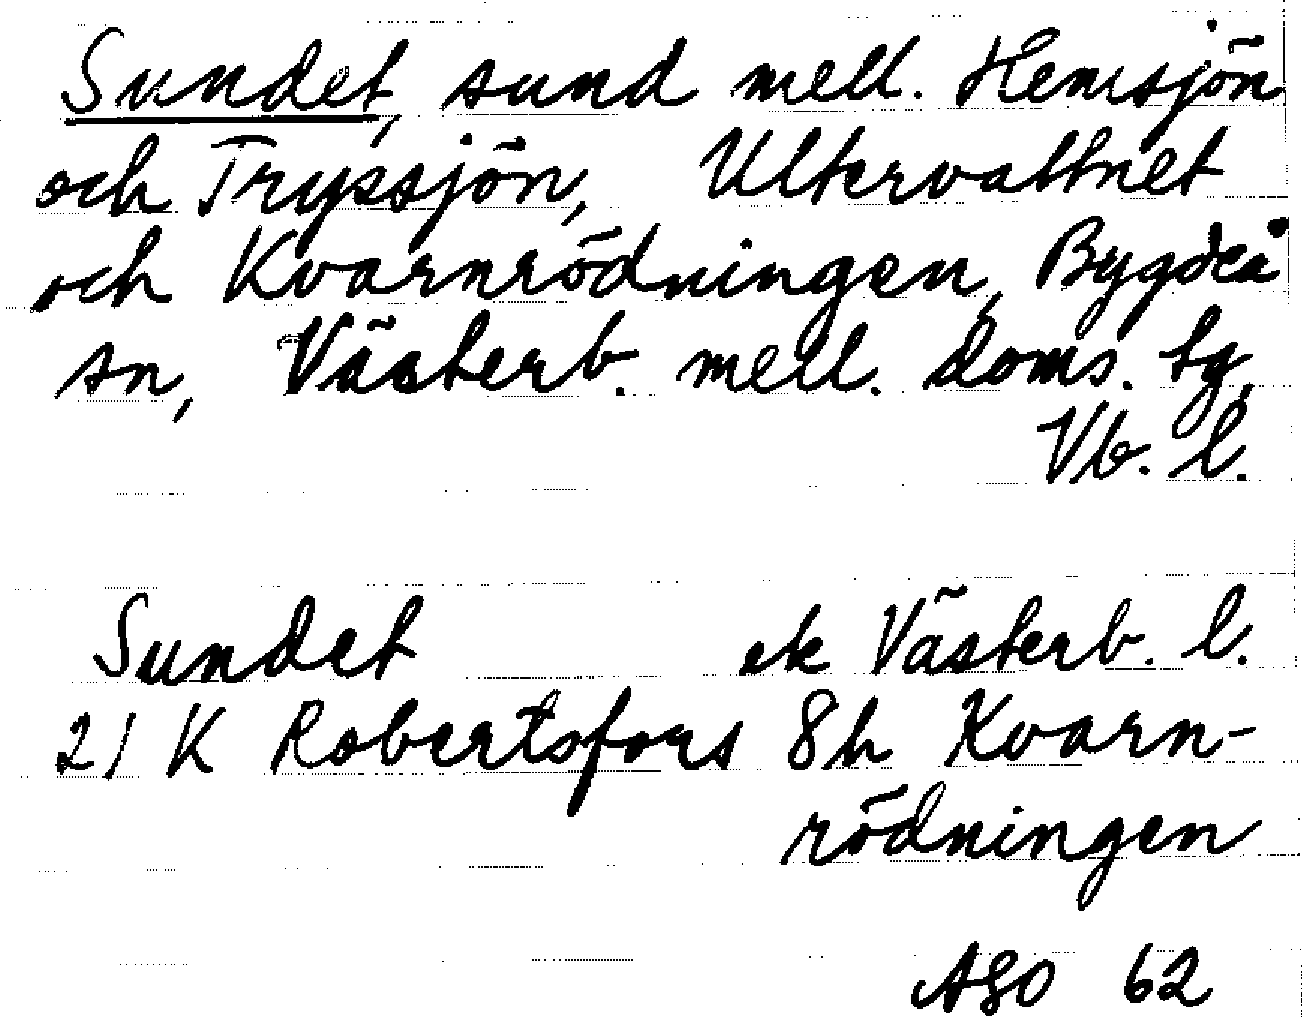 Sundet, sund mell. Hemsjön
och Tryssjön, Ultervattnet
och Kvarnrödningen, Bygdeå
sn, Västerb. mell. doms. tg,
Vb. l.
Sundet ek Västerb. l.
21 K Robertsfors 8h Kvarn-
rödningen
AGO 62